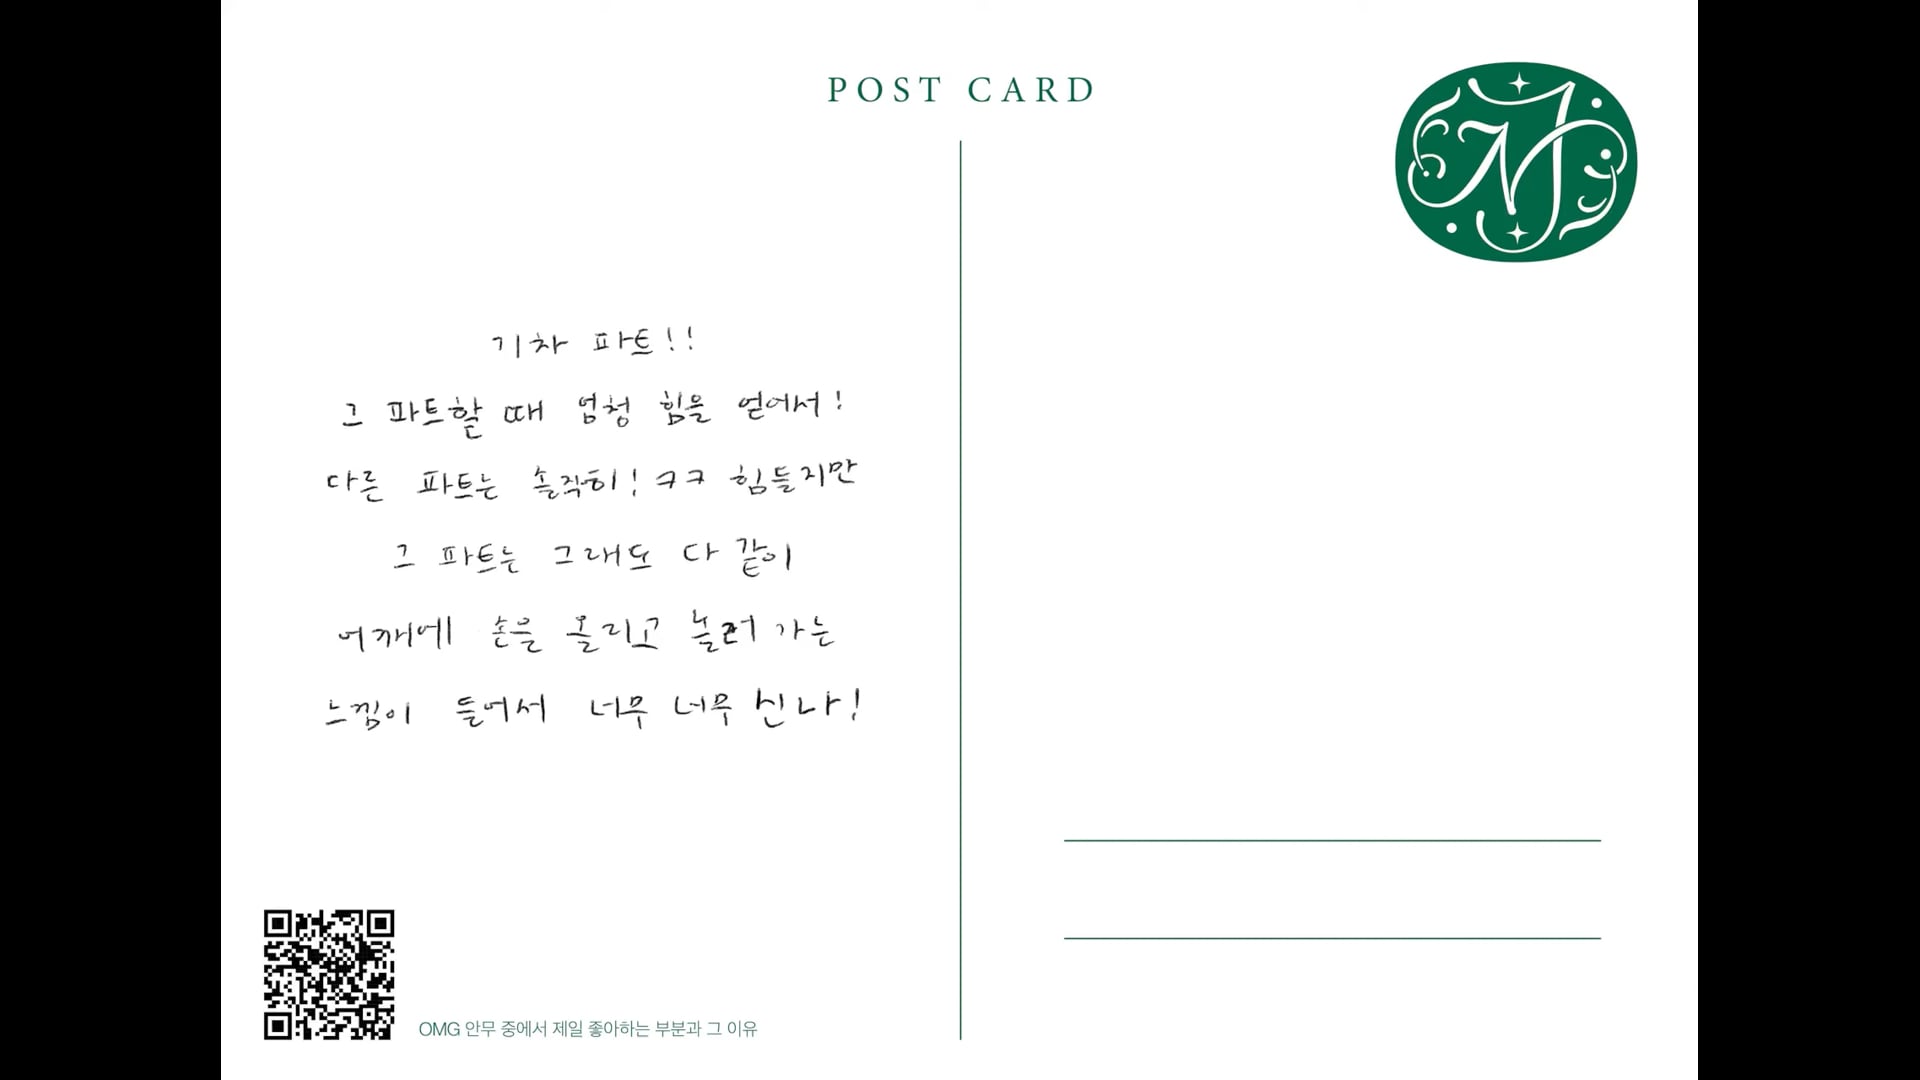 POST CARD
기차 파트!!
그 파트할 때 엄청 힘을 얻어서!
다른 파트는 솔직히! ㅋㅋ 힘들지만
그 파트는 그래도 다 같이
어깨에 손을 올리고 놀러 가는
느낌이 들어서 너무 너무 신나!
OMG 안무 중에서 제일 좋아하는 부분과 그 이유